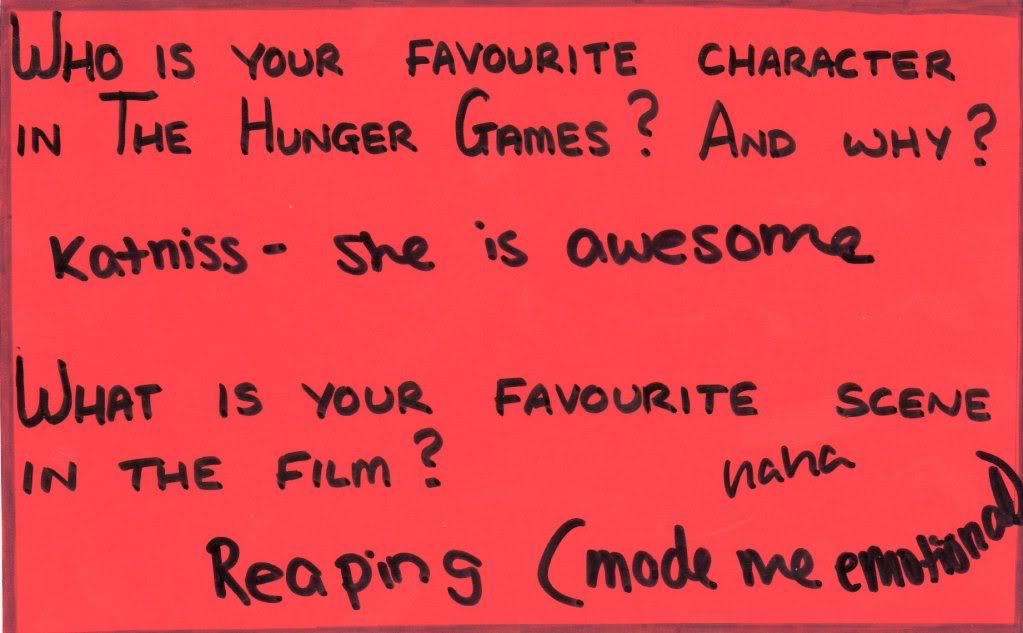 WHO IS YOUR FAVOURITE CHARACTER
IN THE HUNGER GAMES? AND WHY?
Katniss - She is awesome
WHAT IS YOUR FAVOURITE SCENE
IN THE FILM?
haha
Reaping (made me emotional)